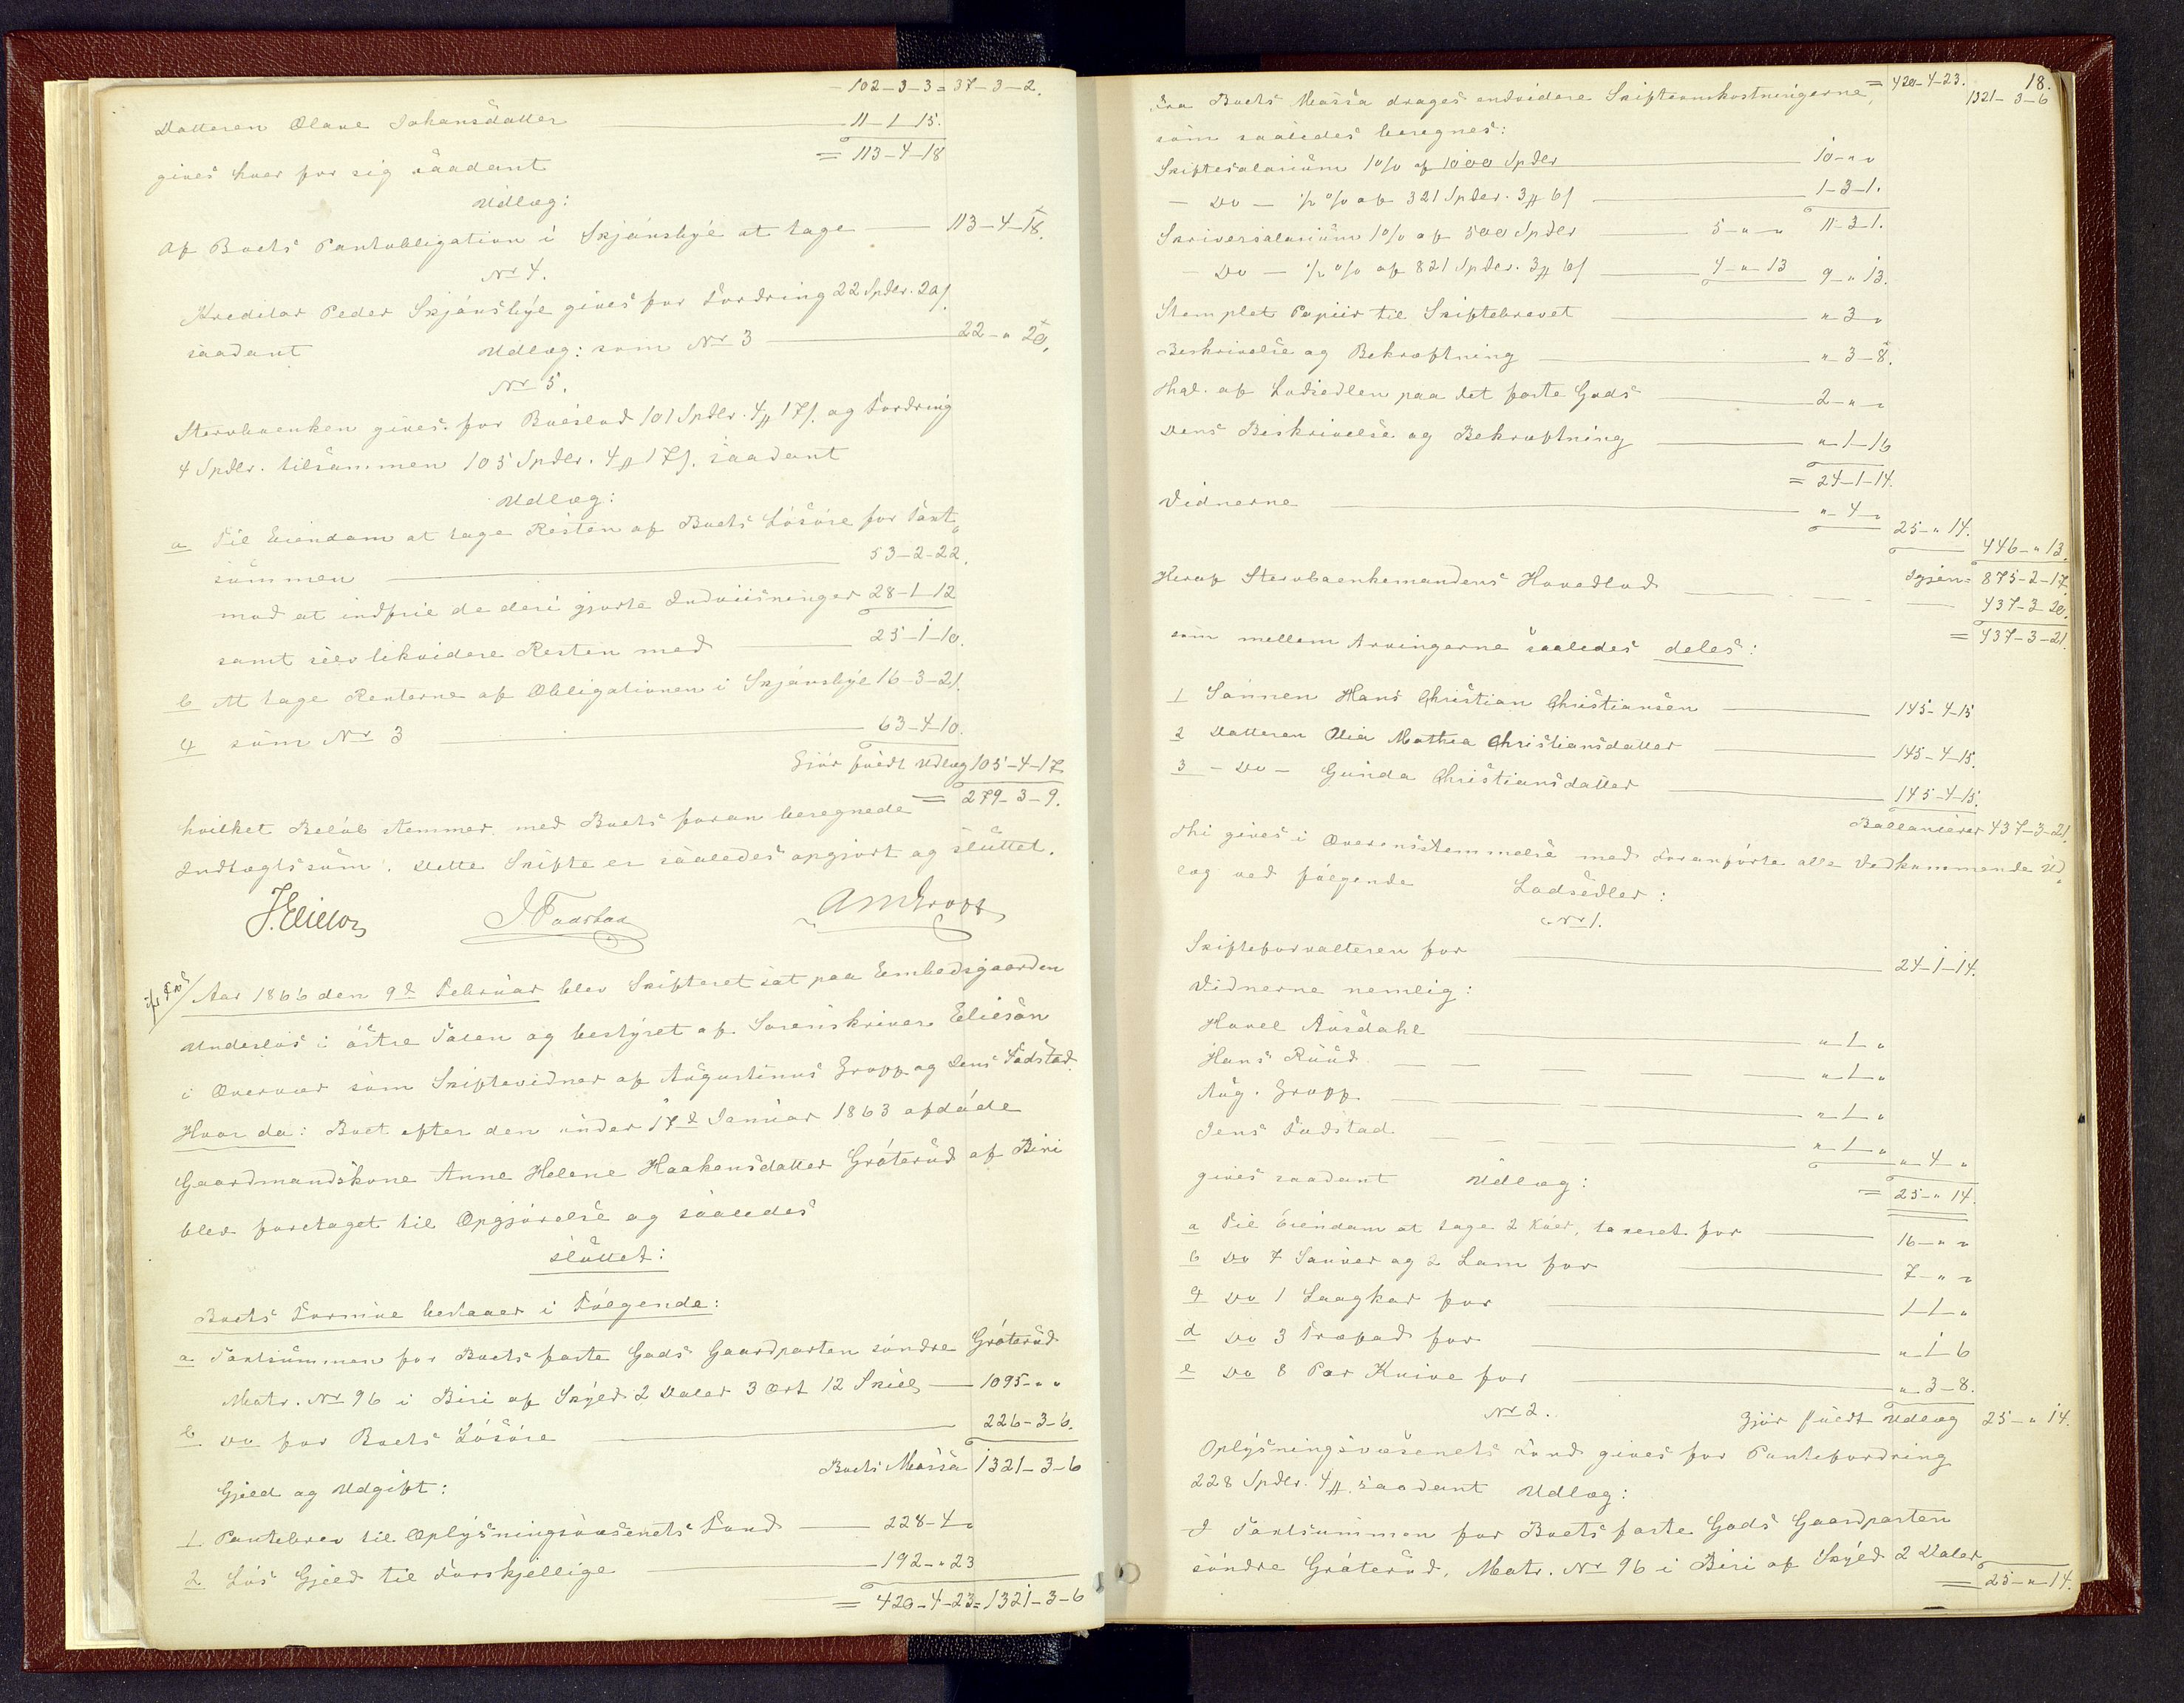 - 102-3-3 = 37-3-2.
Datteren Olave Johansdatter 11-1-15.
= 113-4-18
gives hver for sig saadant
Udlæg:
Af Boets Pantobligation i Skjønsbye at tage 113-4-18.
Nr 4.
Kreditor Peder Skjønsbye gives for Fordring 22 Spdlr. 20 s
saadant Udlæg: som Nr 3 22 - " 20.
Nr 5.
Stervboenken gives for Boeslod 101 Spdlr. 4 # 17 s. og Fordring
4 Spdlr. tilsammen 105 Spdlr. 4 # 17 s. saadant
Udlæg:
a Til Eiendom at tage Resten af Boets Løsøre for Taxt-
summen 53-2-22.
mod at indfrie de deri gjorte Indviisninger 28-1-12
samt selv likvidere Resten med 25-1-10.
b At tage Renterne af Obligationen i Skjønsbye 16-3-21.
c som Nr 3 63-4-10.
Gjør fuldt Udlæg 105-4-17
= 279-3-9.
hvilket Beløb stemmer med Boets foran beregnede
Indtægtssum. Dette Skifte er saaledes opgjort og sluttet.
J. Elieson J. Fadstad A M Gropp
Aar 1866 den 9de Februar blev Skifteret sat paa Embedsgaarden
Underlös i östre Toten og bestyret af Sorenskriver Elieson
i Overvær som Skiftevidner af Augustinus Gropp og Jens Fadstad.
Hvor da: Boet efter den under 17de Januar 1863 afdøde
Gaardmandskone Anne Helene Haakensdatter Gröterud af Biri
blev foretaget til Opgjørelse og saaledes
sluttet:
Boets Formue bestaaer i Følgende:
a Taxtsummen for Boets faste Gods Gaardparten søndre Gröterud
Matr. Nr 96 i Biri af Skyld 2 Daler 3 Ort 12 Skill. 1095 - " "
b Do for Boets Løsøre 226-3-6.
Boets Massa 1321-3-6
Gjeld og Udgift:
1 Pantebrev til Oplysningsvæsenets Fond 228-4 "
2 Løs Gjeld til Forskjellige 192 - " 23
= 420-4-23 = 1321-3-6
18.
= 420-4-23. 1321-3-6
Fra Boets Massa drages endvidere Skifteomkostningerne,
som saaledes beregnes:
Skiftesalarium 1 % af 1000 Spdlr 10 - " "
- Do - 1/2 % af 321 Spdlr. 3 # 6 s 1-3-1.
11-3-1.
Skriversalarium 1 % af 500 Spdlr 5 - " - "
- Do - 1/2 % af 821 Spdlr. 3 # 6 s 4 - " - 13 9 " 13.
Stemplet Papiir til Skiftebrevet " 3 "
Beskrivelse og Bekræftning " - 3-8.
Thgl. af Lodsedlen paa det faste Gods 2 - " "
Dens Beskrivelse og Bekræftning " - 1-16
= 24-1-14.
Vidnerne " 4 "
25 - " 14. 446 - " 13.
Igjen = 875-2-17.
Heraf Stervboenkemandens Hovedlod 437-3-20.
= 437-3-21.
som mellem Arvingerne saaledes deles:
1 Sønnen Hans Christian Christiansen 145-4-15
2 Datteren Olia Mathea Christiansdatter 145-4-15.
3 - Do - Gunda Christiansdatter 145-4-15.
Ballancerer 437-3-21.
Thi gives i Overensstemmelse med Foranførte alle Vedkommende Ud-
læg ved følgende Lodsedler:
Nr 1.
Skifteforvalteren for 24-1-14.
Vidnerne nemlig:
Havel Ausdahl " 1 "
Hans Ruud " 1 "
Aug. Gropp " 1 "
Jens Fadstad " 1 "
" 4 "
gives saadant Udlæg: = 25 - " 14.
a Til Eiendom at tage 2 Køer, taxeret for 16 - " "
b Do 7 Sauer og 2 Lam for 7 - " "
c Do 1 Laagkar for 1-1 "
d Do 3 Træfad for " 1-6
e Do 8 Par Knive for " - 3-8.
Nr 2. Gjør fuldt Udlæg 25 - " 14.
Oplysningsvæsenets Fond gives for Pantefordring
228 Spdlr. 4 #. saadant Udlæg:
I Taxtsummen for Boets faste Gods Gaardparten
søndre Gröterud, Matr. Nr 96 i Biri af Skyld 2 Daler
= 25 - " 14.